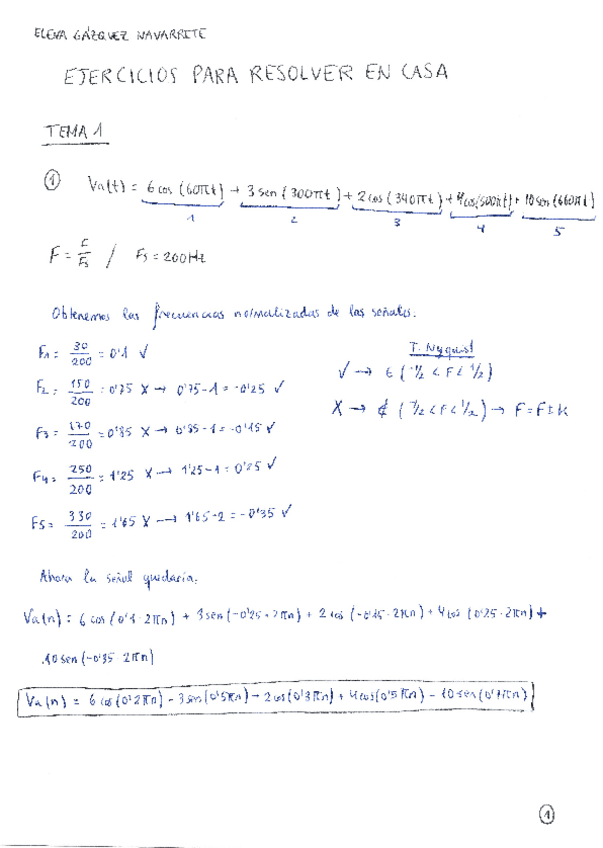 ELENA GÁZQUEZ NAVARRETE
EJERCICIOS PARA RESOLVER EN CASA
TEMA 1
① Va(t) = 6 cos (60πt) + 3 sen (300πt) + 2 cos (340πt) + 4 cos(500πt) + 10 sen (660πt)
1 2 3 4 5
F = F/Fs / Fs = 200 Hz
Obtenemos las frecuencias normalizadas de las señales.
F1 = 30/200 = 0'1 ✓
F2 = 150/200 = 0'75 X → 0'75-1 = -0'25 ✓
F3 = 170/200 = 0'85 X → 0'85-1 = -0'15 ✓
F4 = 250/200 = 1'25 X → 1'25-1 = 0'25 ✓
F5 = 330/200 = 1'65 X → 1'65-2 = -0'35 ✓
T. Nyquist
✓ → ∈ (-1/2 < F < 1/2)
X → ∉ (-1/2 < F < 1/2) → F = F ± k
Ahora la señal quedaría:
Va(n) = 6 cos (0'1 · 2πn) + 3 sen (-0'25 · 2πn) + 2 cos (-0'15 · 2πn) + 4 cos (0'25 · 2πn) +
10 sen (-0'35 · 2πn)
Va(n) = 6 cos (0'2πn) - 3 sen (0'5πn) + 2 cos (0'3πn) + 4 cos (0'5πn) - 10 sen (0'7πn)
1